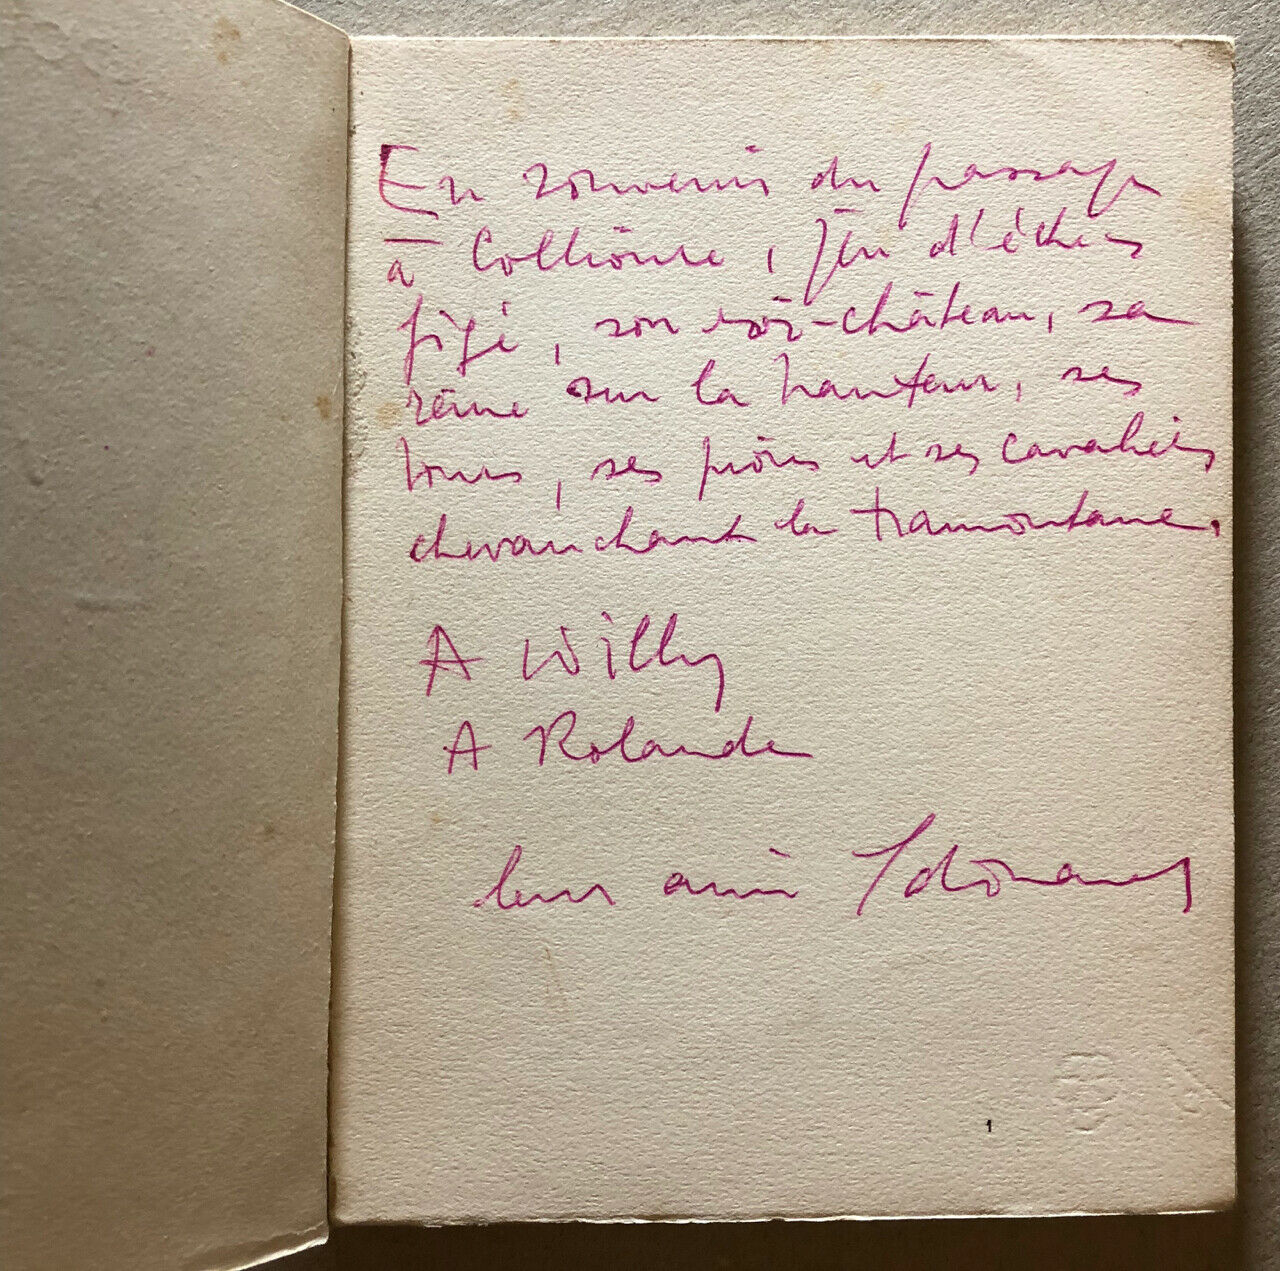 En souvenir du passage
à Collioure, jeu d'échecs
figé, son roi-château, sa
reine sur la hauteur, ses
tours, ses pions et ses cavaliers
chevauchant la tramontane.
A Willy
A Rolande
leur ami
1